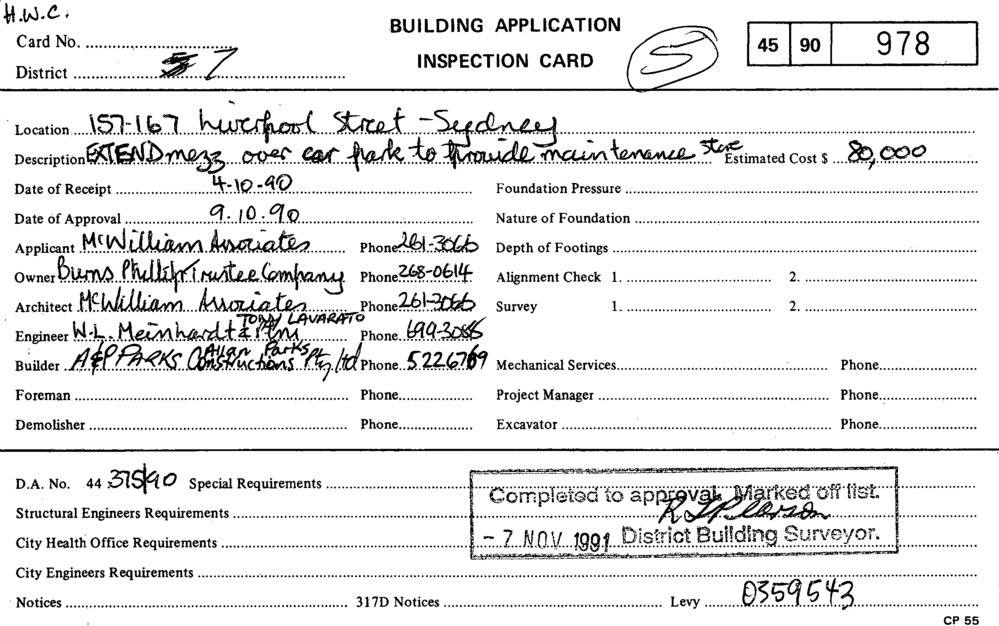 H.W.C.
BUILDING APPLICATION
INSPECTION CARD
5
45 90 978
Card No.
District 7
Location 157-167 Liverpool Street - Sydney
Description EXTEND mezz over car park to provide maintenance store Estimated Cost $ 80,000
Date of Receipt 4-10-90 Foundation Pressure
Date of Approval 9.10.90 Nature of Foundation
Applicant McWilliam Associates Phone 261-3066 Depth of Footings
Owner Burns Phillip Trustee Company Phone 268-0614 Alignment Check 1. 2.
Architect McWilliam Associates Phone 261-3066 Survey 1. 2.
TONY LAVARATO
Engineer W.L. Meinhardt & Ptnrs Phone 699-3085
Allan Parks
Builder A&P PARKS Constructions Pty Ltd Phone 5226769 Mechanical Services Phone
Foreman Phone Project Manager Phone
Demolisher Phone Excavator Phone
D.A. No. 44 375/90 Special Requirements
Completed to approval. Marked off list.
Structural Engineers Requirements
City Health Office Requirements
- 7 NOV 1991 District Building Surveyor.
City Engineers Requirements
Notices 317D Notices Levy 0359543
CP 55